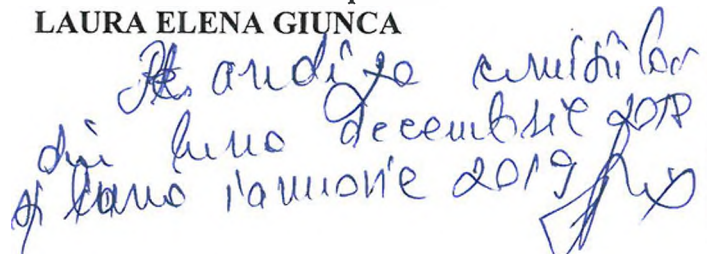 LAURA ELENA GIUNCA
Pt. audiția emisiilor
din luna decembrie 2018
și luna ianuarie 2019